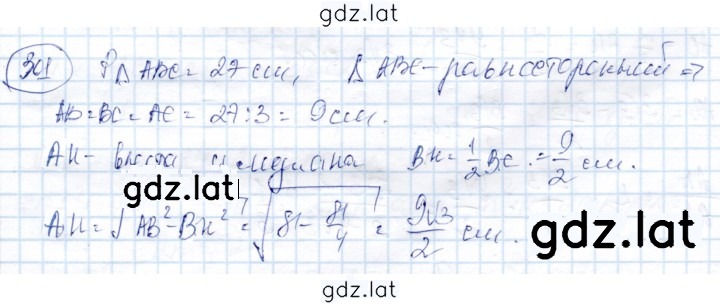 gdz.lat
301 P△ABC = 27 см, △ABC - равносторонний ⇒
AB = BC = AC = 27 : 3 = 9 см.
AH - высота и медиана BH = 1/2 BC = 9/2 см.
gdz.lat
AH = √(AB² - BH²) = √(81 - 81/4) = 9√3/2 см.
gdz.lat
gdz.lat